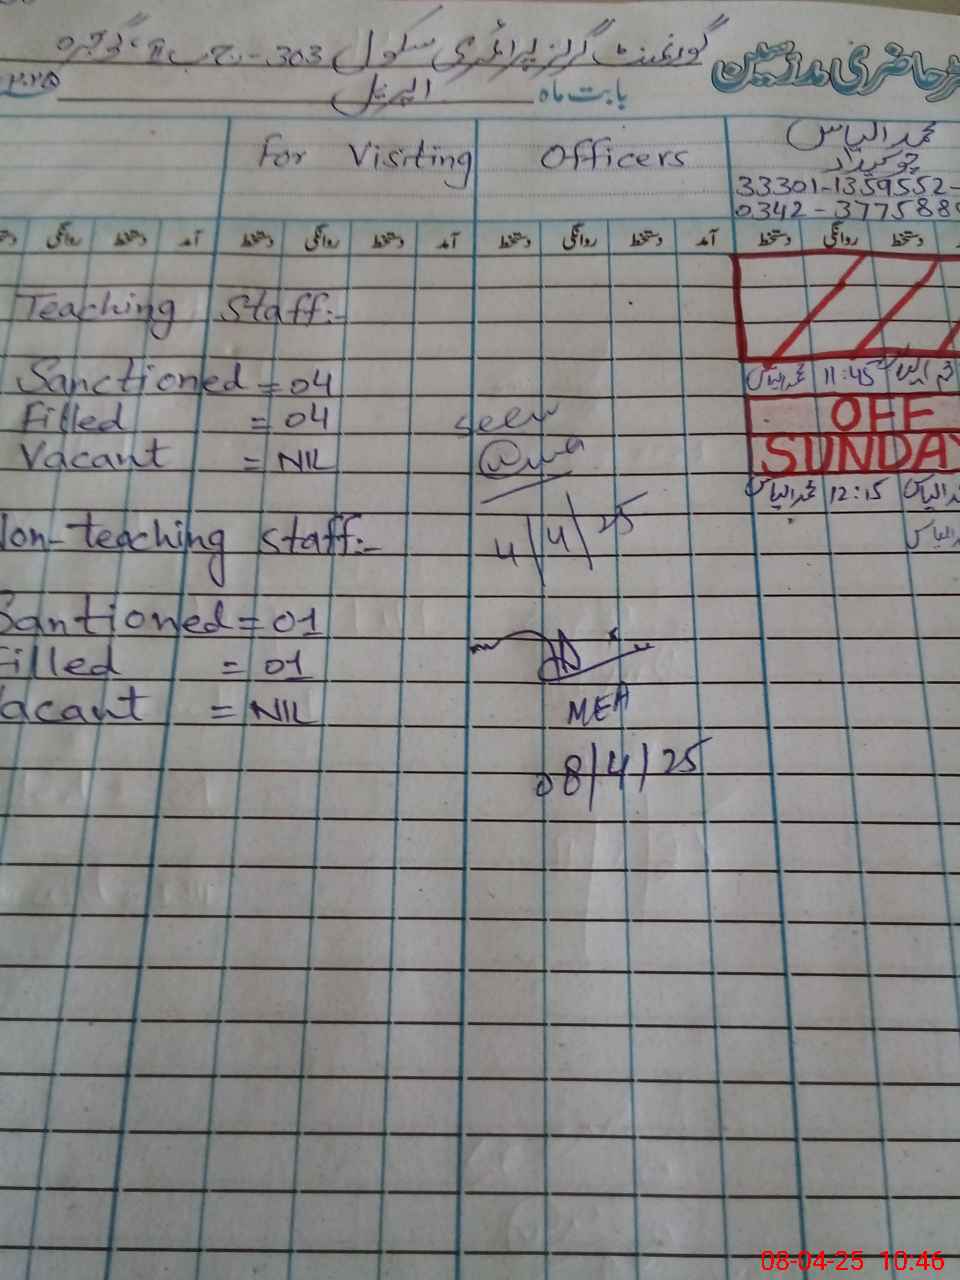 گورنمنٹ گرلز پرائمری سکول 303 ج۔ب
حاضری ملازمین
بابت ماہ اپریل
For Visiting Officers
محمد الیاس
چوکیدار
33301-1359552-
0342-377588
دستخط روانگی دستخط آمد دستخط روانگی دستخط آمد دستخط روانگی دستخط
Teaching Staff:-
Sanctioned = 04
محمد الیاس 11:45 محمد الیاس
Filled = 04
seen
OFF
Vacant = NIL
SUNDAY
محمد الیاس 12:15 محمد الیاس
Non-teaching staff:-
4/4/25
Santioned = 01
Filled = 01
Vacant = NIL
MEA
08/4/25
08-04-25 10:46